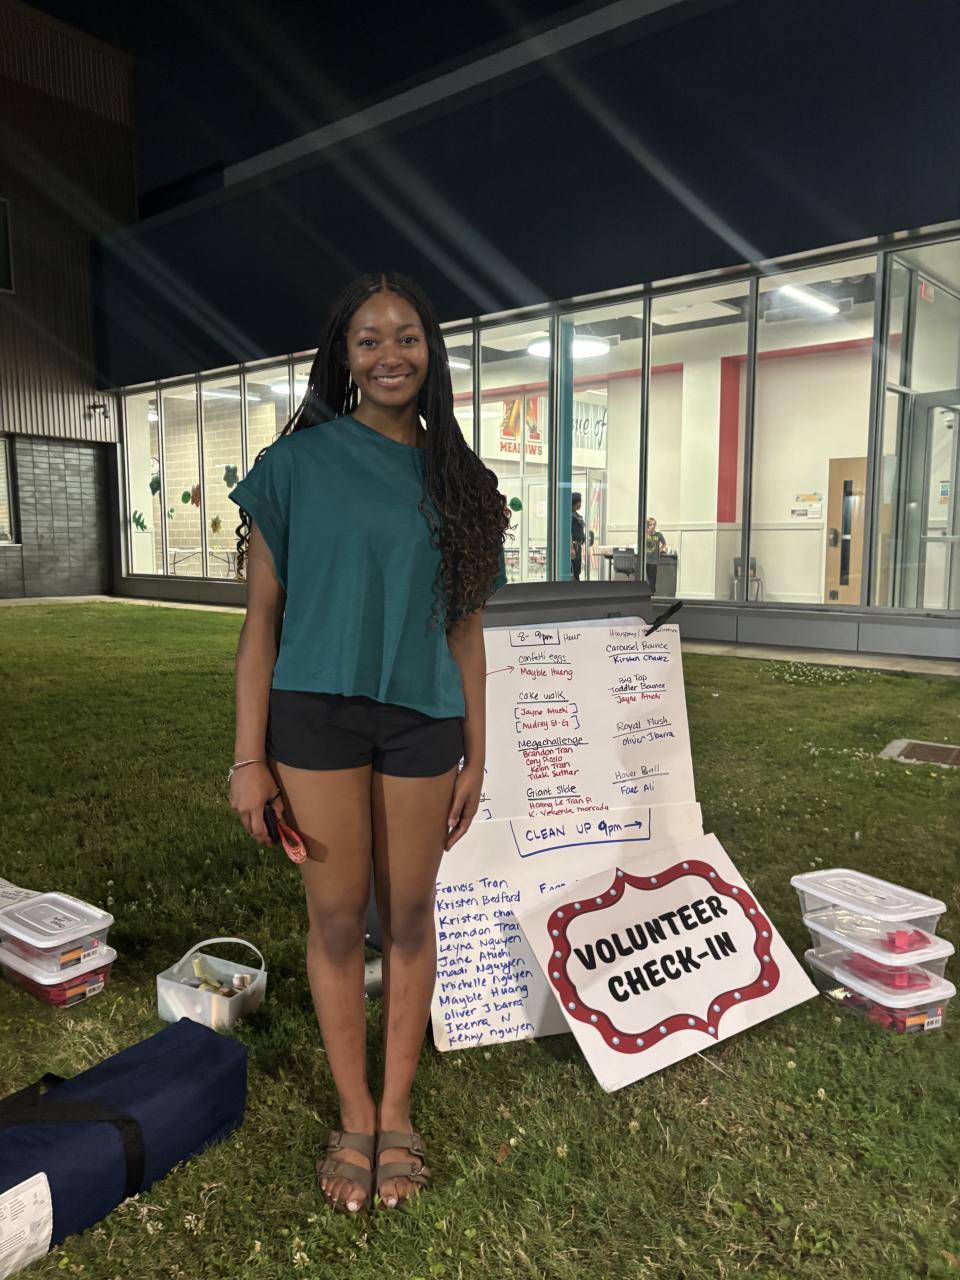 MEADOWS
me of
8- 9pm Hour
confetti eggs
Mayble Huang
cake walk
[Jayne Atuehi]
[Audrey St-G]
Megachallenge
Brandon Tran
Cory Picolo
Kevin Tran
Tilak Suthar
Giant Slide
Hoang Le Tran P.
K.
Carousel Bounce
Kirsten Chavez
Big Top
Toddler Bounce
Jayne Atuehi
Royal Flush
Oliver Ibarra
Hover Ball
Faaz Ali
CLEAN UP 9pm →
Francis Tran
Kristen Bedford
Kristen chav
Brandon Tran
Leyna Nguyen
Jane Atuehi
Madi Nguyen
Michelle Nguyen
Mayble Huang
Oliver Ibarra
Ikenna N
Kenny nguyen
VOLUNTEER
CHECK-IN